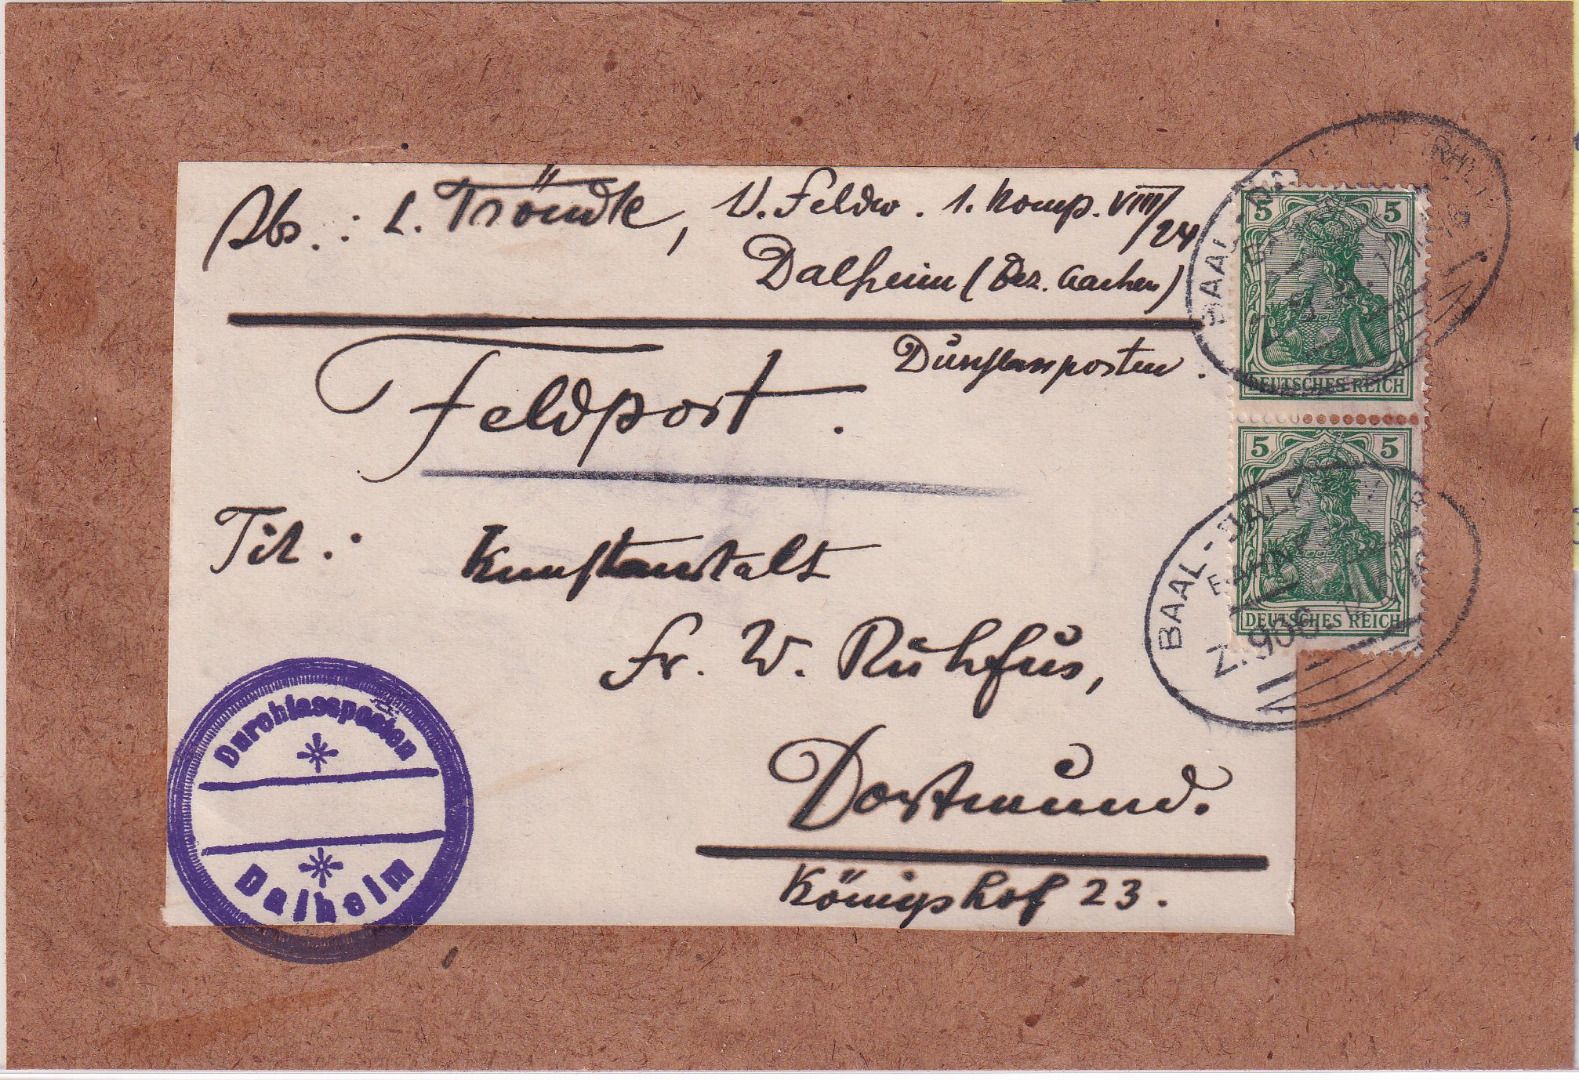 Abs.: L. Tröndle, U. Feldw. 1. Komp. VIII/24
Dalheim (Bez. Aachen)
Durchlassposten.
Feldpost.
Tit.: Kunstanstalt
Fr. W. Ruhfus,
Dortmund.
Königshof 23.
Durchlassposten
Dalheim
5 5
DEUTSCHES REICH
5 5
DEUTSCHES REICH
BAAL-
BAAL-DALH
BAHNP
Z. 906